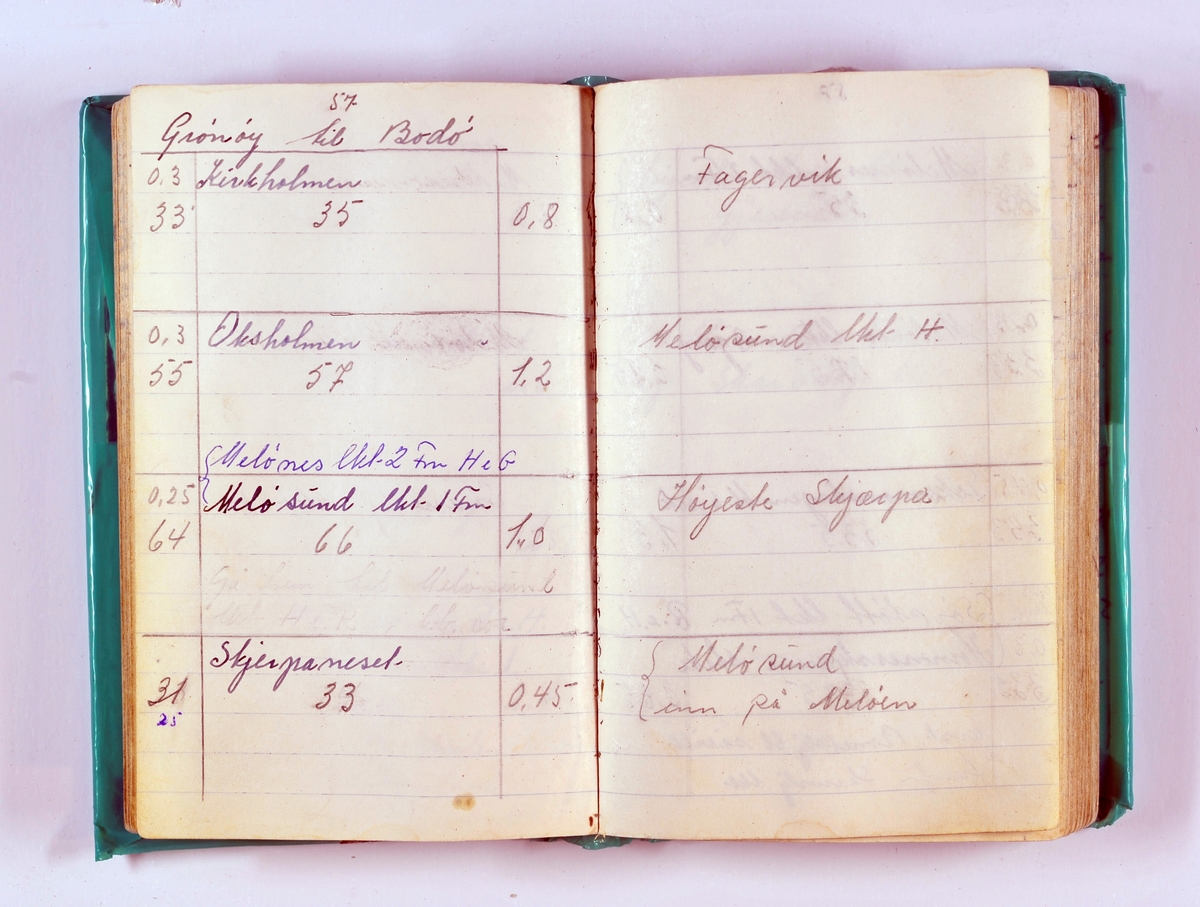 57
Grónóy til Bodó
0,3 Kirkholmen
33 35 0,8
0,3 Oksholmen
55 57 1,2
Melónes lkt 2 Fm H e G
0,25 Meló sund lkt 1 Fm
64 66 1,0
Gå Meló sund
lkt H
Skjerpaneset
31 33 0,45
25
Fagervik
Melósund lkt H.
Høyeste Skjærpa
Meló sund
inn på Melóen